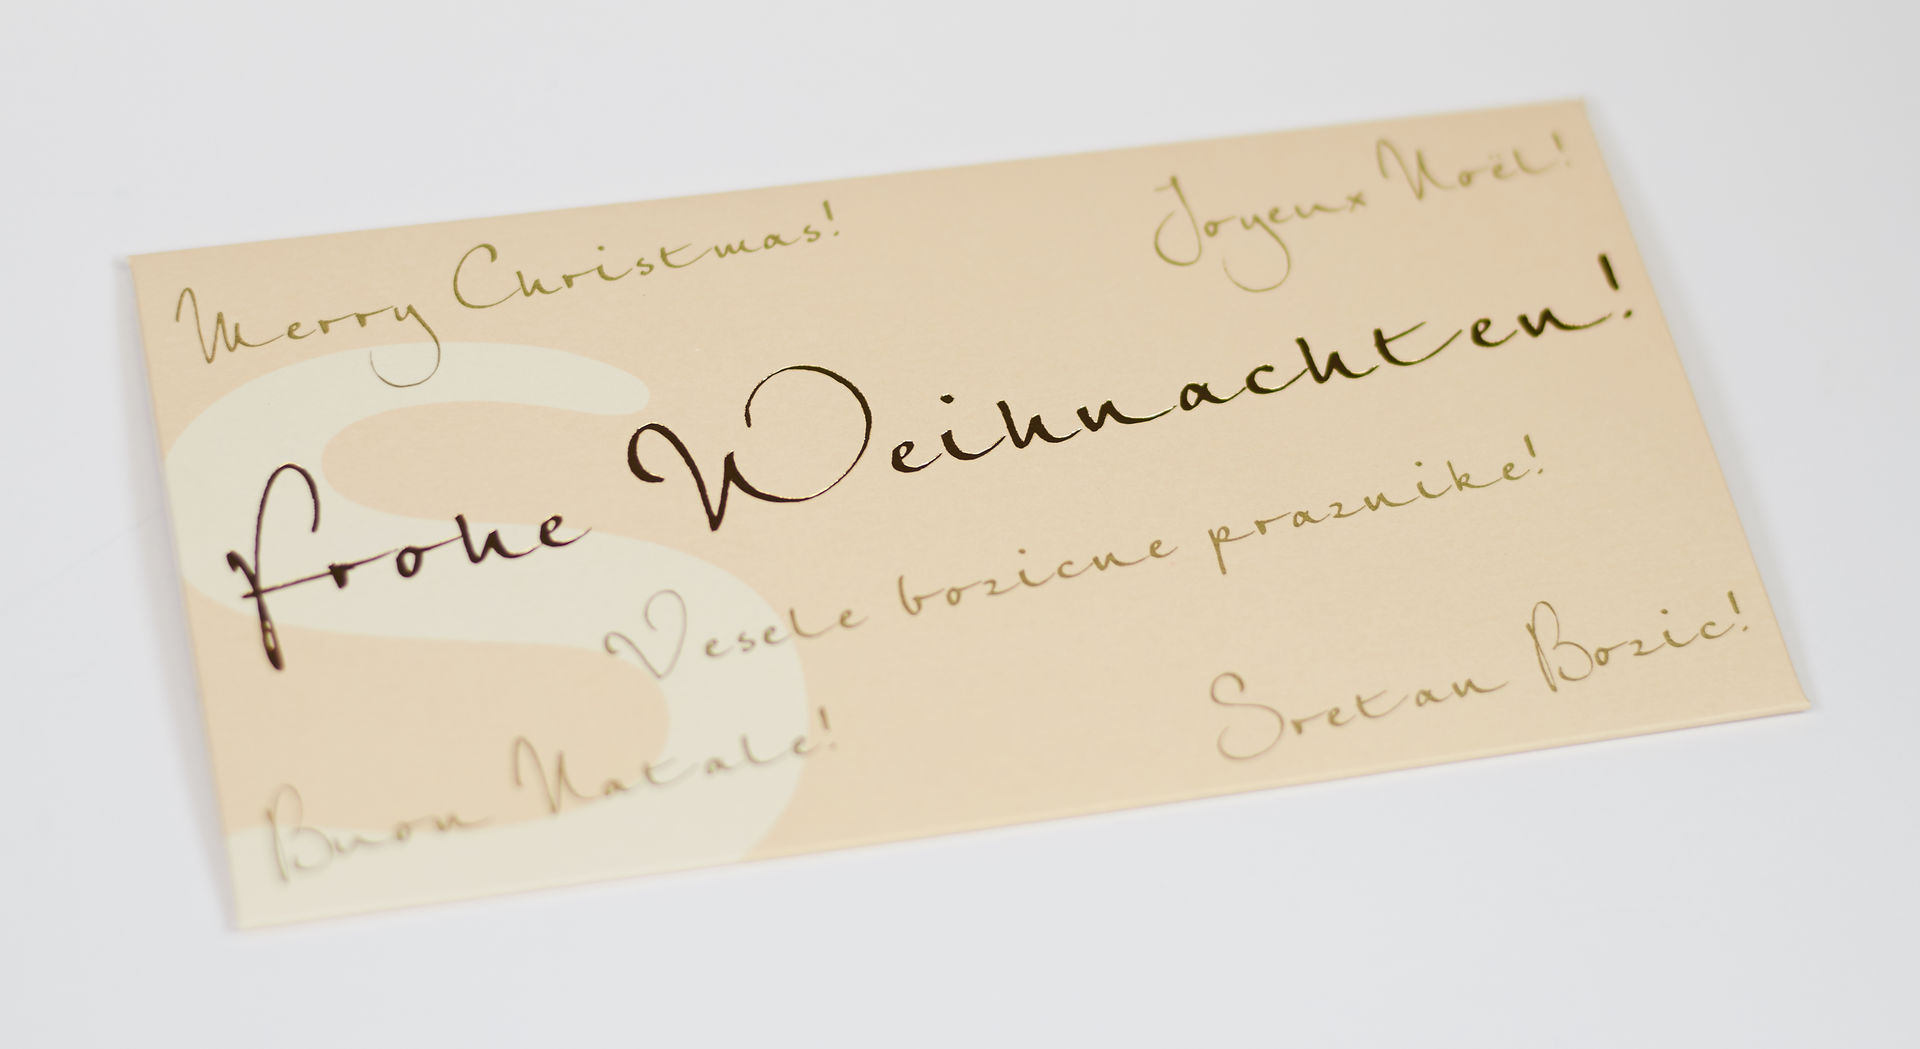 Merry Christmas!
Joyeux Noël!
Frohe Weihnachten!
Vesele bozicne praznike!
Buon Natale!
Sretan Bozic!